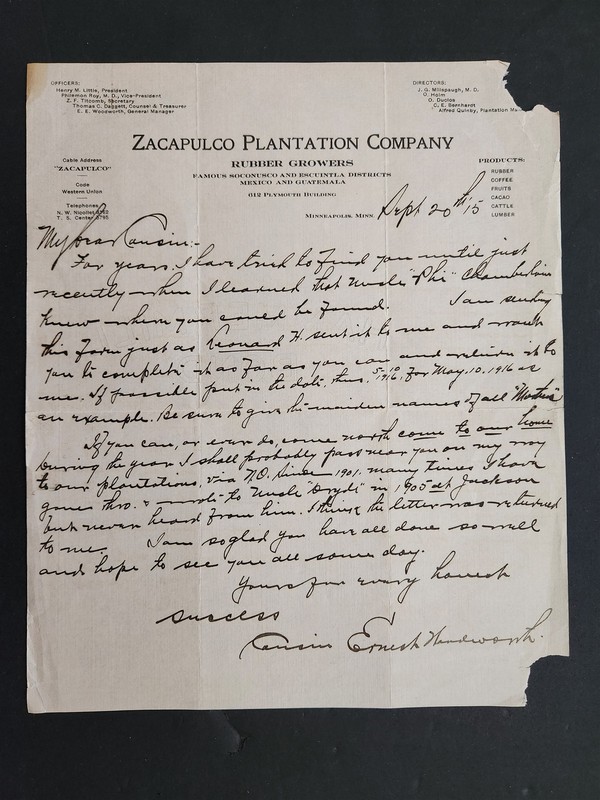 OFFICERS:
Henry M. Little, President
Philemon Roy, M. D., Vice-President
Z. F. Titcomb, Secretary
Thomas C. Daggett, Counsel & Treasurer
E. E. Woodworth, General Manager
DIRECTORS:
J. G. Millspaugh, M. D.
O. Holm
O. Duclos
C. E. Bernhardt
Alfred Quinby, Plantation Ma
ZACAPULCO PLANTATION COMPANY
RUBBER GROWERS
FAMOUS SOCONUSCO AND ESCUINTLA DISTRICTS
MEXICO AND GUATEMALA
612 PLYMOUTH BUILDING
Cable Address
"ZACAPULCO"
Code
Western Union
Telephones
N. W. Nicollet
T. S. Center 5795
PRODUCTS:
RUBBER
COFFEE
FRUITS
CACAO
CATTLE
LUMBER
MINNEAPOLIS, MINN. Sept 20th 15
My Dear Cousin:-
For years I have tried to find you until just
recently when I learned that Uncle "Phi" Chamberlain
knew where you could be found. I am sending
this form just as Leonard H. sent it to me and want
you to complete it as far as you can and return it to
me. If possible put in the date, thus, 5/10/1916, for May, 10, 1916 as
an example. Be sure to give the maiden names of all "Mothers"
If you can, or ever do, come north come to our home
During the year I shall probably pass near you on my way
to our plantations, via N.O. Since 1901. many times I have
gone thro. & wrote to Uncle in 1905 at Jackson
but never heard from him. I think the letter was returned
to me. I am so glad you have all done so well
and hope to see you all some day.
Yours for every honest
success
Cousin Ernest Woodworth.